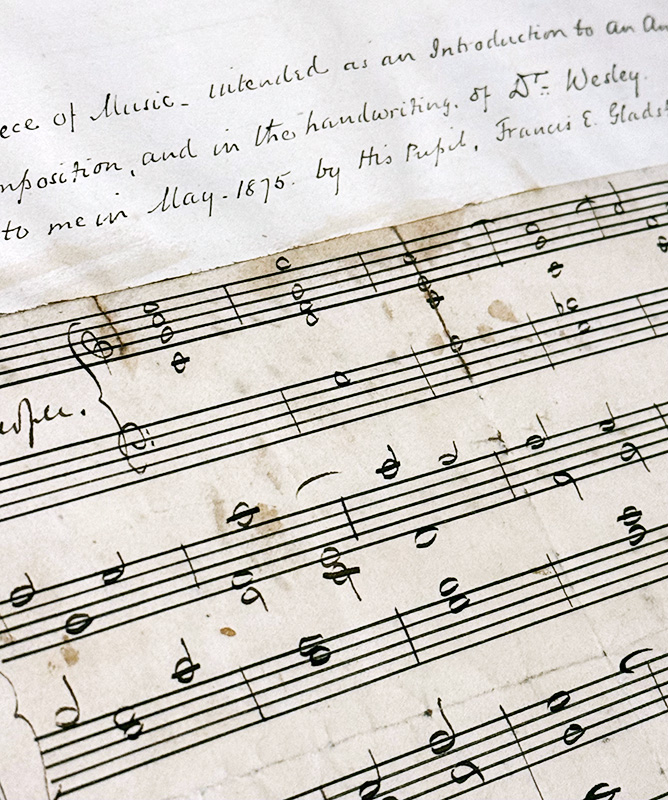 ece of Music - intended as an Introduction to an An
mposition, and in the handwriting. of Dr. Wesley.
to me in May - 1875. by His Pupil, Francis E. Gladst